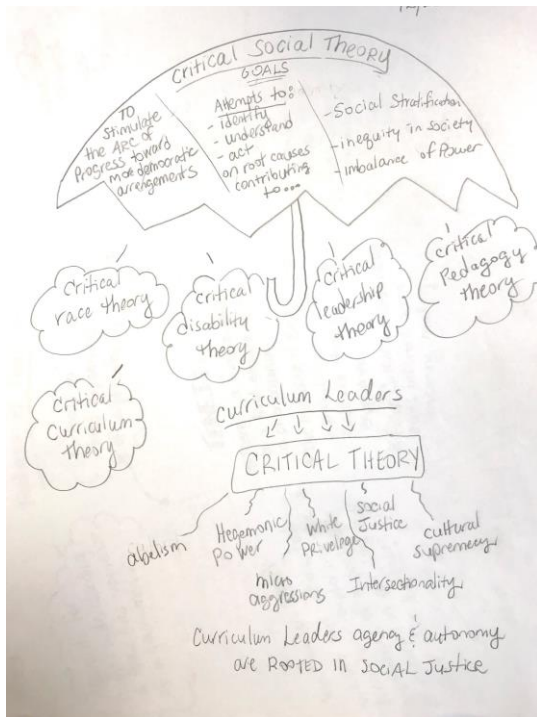 Critical Social Theory
GOALS
TO
Stimulate
the ARC of
Progress toward
more democratic
arrangements
Attempts to:
- identify
- understand
- act
on root causes
contributing
to...
- Social Stratification
- inequity in society
- imbalance of Power
Critical
race theory
Critical
disability
theory
Critical
leadership
theory
Critical
Pedagogy
theory
Critical
Curriculum
theory
Curriculum Leaders
CRITICAL THEORY
abelism
Hegemonic
Power
micro
aggressions
White
Privelage
Social
Justice
Intersectionality
Cultural
Supremecy
Curriculum Leaders agency & autonomy
are ROOTED IN SOCIAL JUSTICE